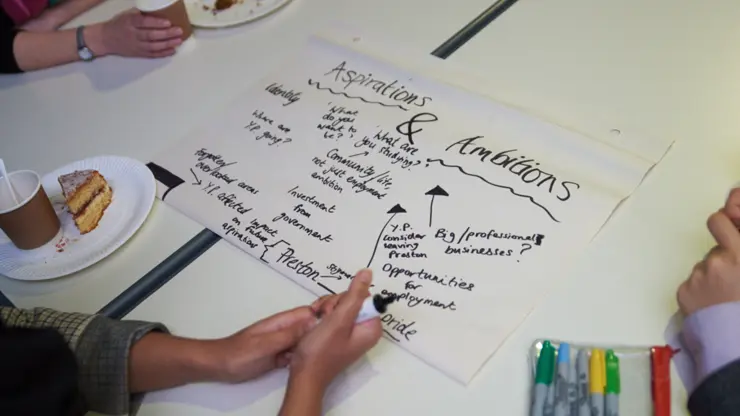 Aspirations
&
Ambitions
Identity
Where are
Y.P. going?
'What
do you
want to
be?'
'What are
you studying?'
Community/life,
not just employment
ambition
Forgotten/
overlooked areas
Y.P. affected
impact
on future
aspirations
Investment
from
government
Preston
Y.P.
consider
leaving
Preston
Big/professional
businesses?
Opportunities
for
employment
pride